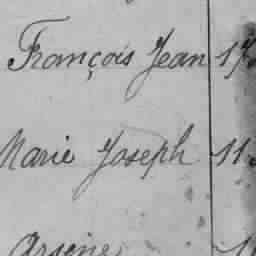 François Jean 17
Marie Joseph 11
Arsène